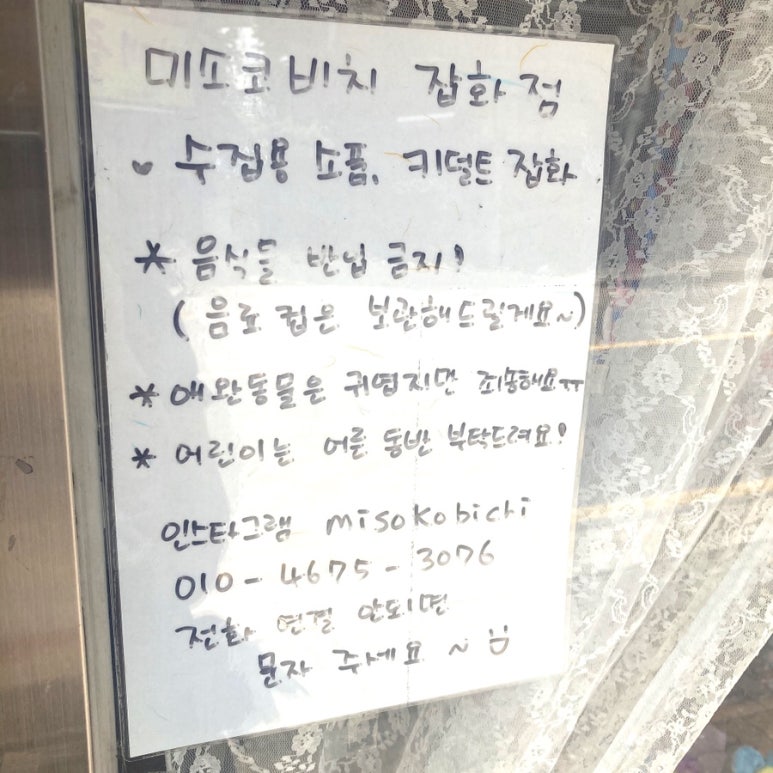 미소코비치 잡화점
수집용 소품, 키덜트 잡화
* 음식물 반입 금지!
(음료 컵은 보관해드릴게요~)
* 애완동물은 귀엽지만 죄송해요ㅠ
* 어린이는 어른 동반 부탁드려요!
인스타그램 misokobichi
010-4675-3076
전화 연결 안되면
문자 주세요~